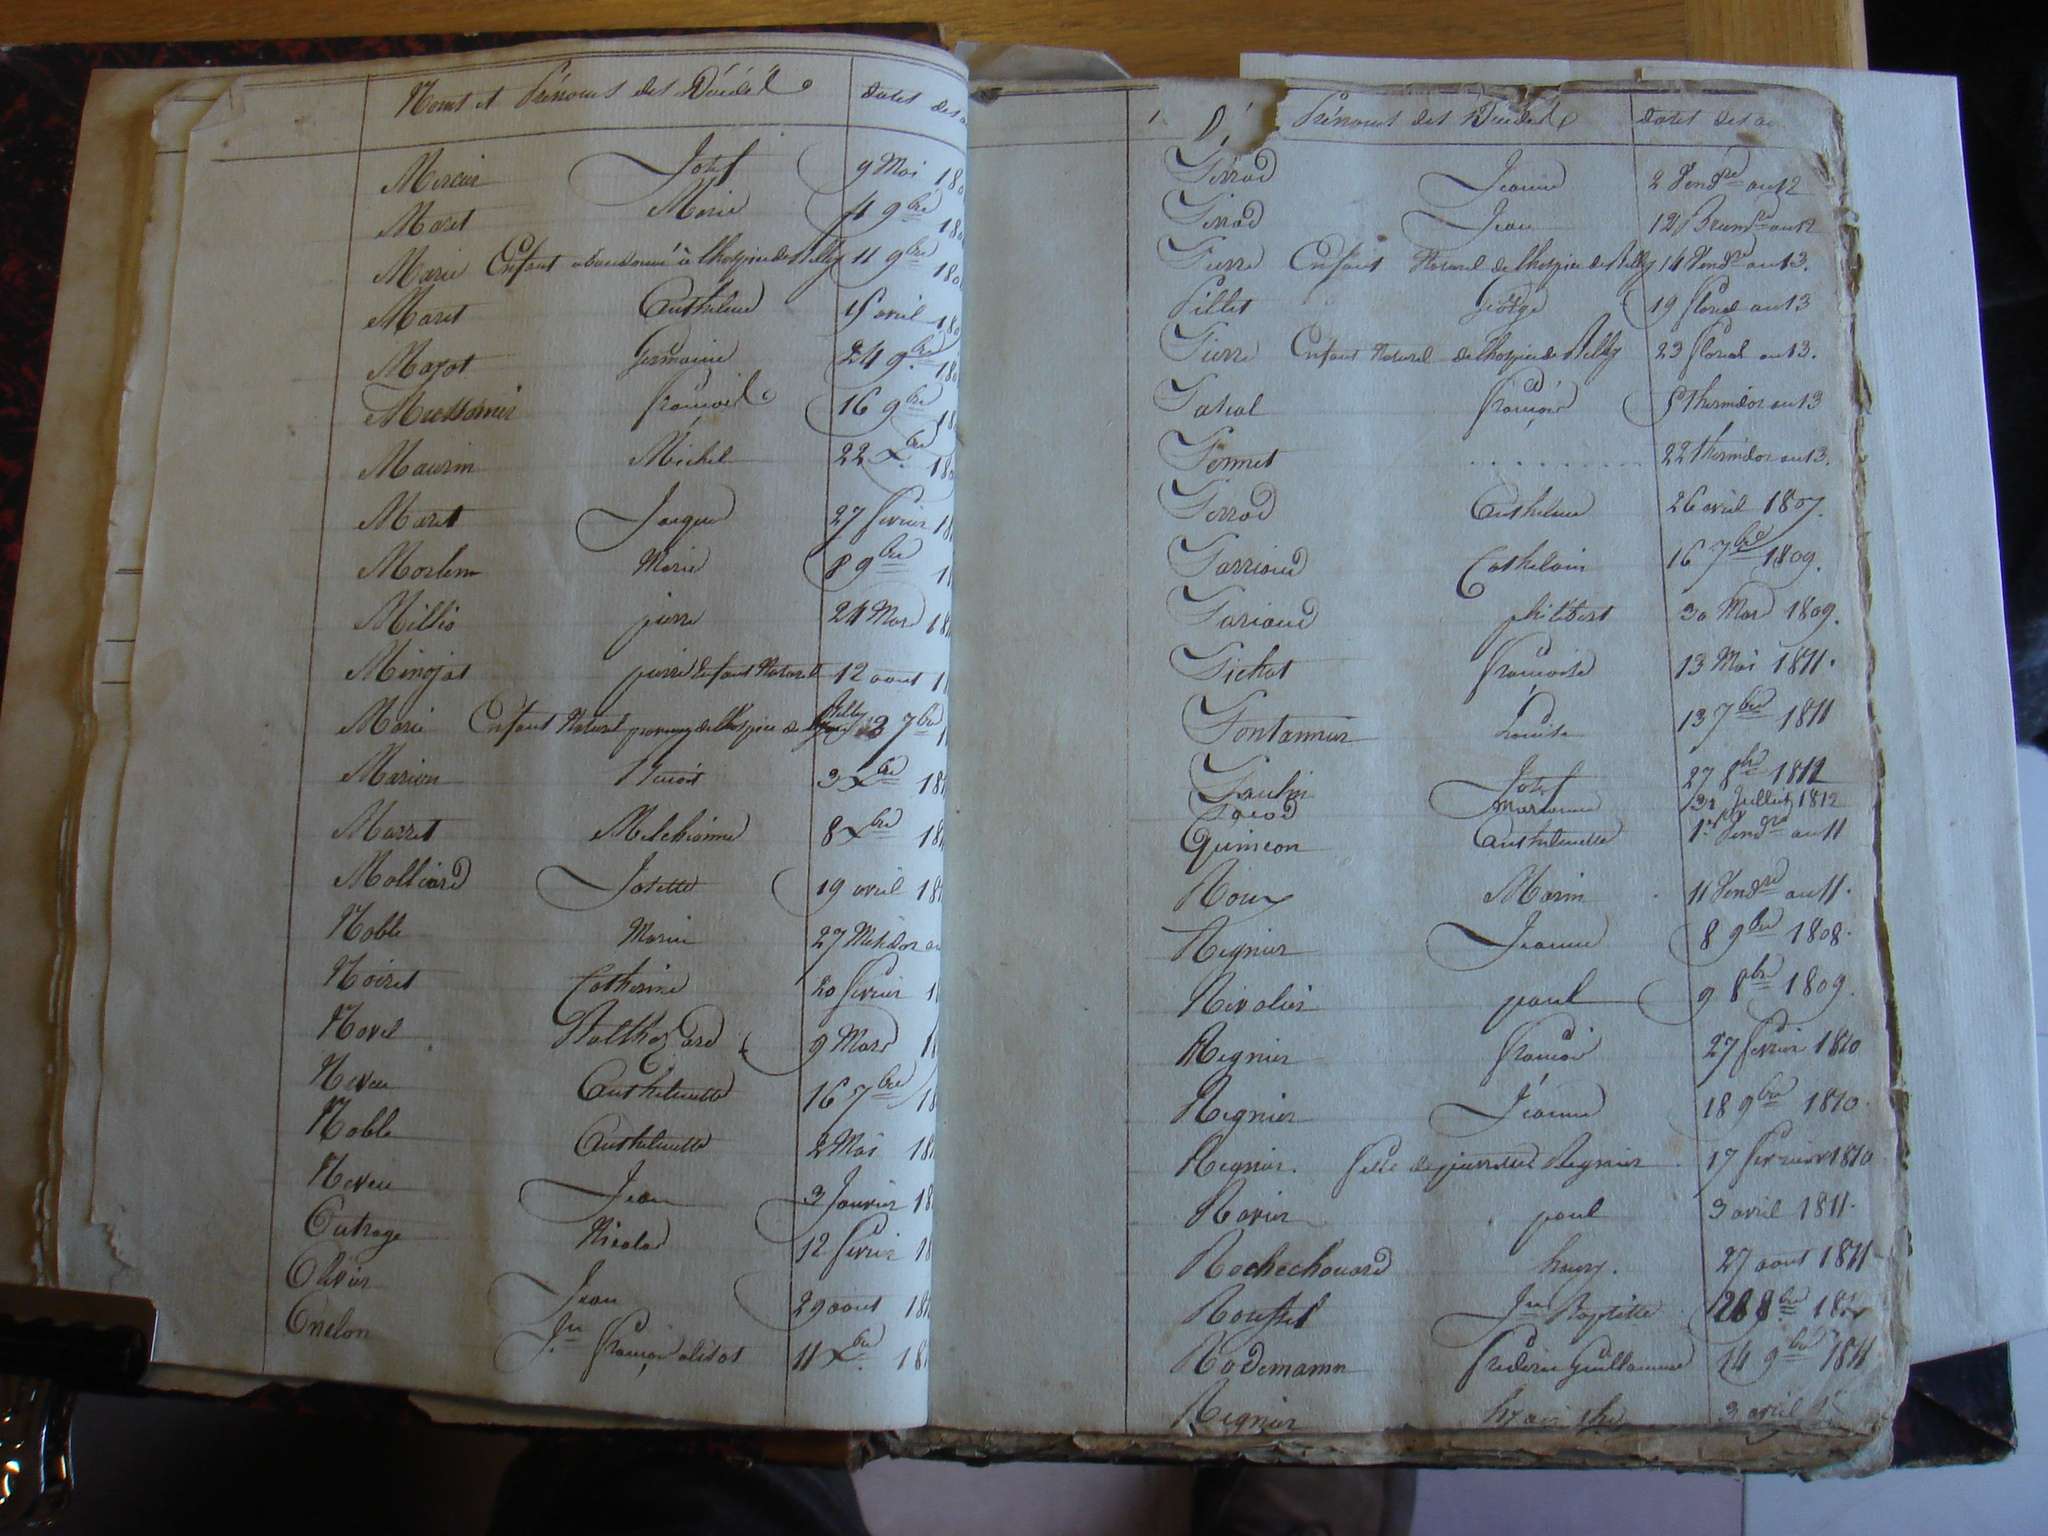 Noms et Prénoms des Décédés dates des
Mercier Josef 9 Mai 180
Maret Marie 11 9bre 180
Marie Enfant abandonné à lhospice de Belley 11 9bre 180
Maret Anthelme 15 avril 180
Mayot Germaine 24 9bre 180
francois 16 9bre 18
Maurin Michel 22 Xbre 180
Maret Jaque 27 fevrier 18
Morlem Marie 8 9bre 1
Millio pierre 24 Mars 18
Minojat pierre Enfant Naturel 12 aout 1
Marie Enfant Naturel provenu de lhospice de Belley 7bre 1
Marion Benoit 3 Xbre 18
Marret Melchionne 8 Xbre 18
Molliard Josette 19 avril 18
Noble Marie 27 Messidor an
Noiret Catherine 20 fevrier 1
Novel Balthazard 9 Mars 1
Neveu Anthelmette 16 7bre 18
Noble Anthelmette 2 Mai 18
Neveu Jean 3 Janvier 18
Outrage Nicolas 12 fevrier 18
Olivier Jean 29 aout 18
Onelon Jn francois 11 Xbre 18
Prénoms des Décédés dates des a
Perrod Jeanne 2 Vendre an 12
Perrod Jean 12 Brumre an 12
Pierre Enfant Naturel de lhospice de Belley 14 Vendre an 13.
Pillet George 19 floreal an 13
Pierre Enfant Naturel de lhospice de Belley 23 floreal an 13.
Pascal francois 5 thermidor an 13
Pernet . . . . . . . . 22 thermidor an 13.
Perrod Anthelme 26 avril 1807.
Parriaud Cathelain 16 7bre 1809.
Pariaud philibert 30 Mars 1809.
Pichat francoise 13 Mai 1811.
Pontannier Louise 13 7bre 1811
Paulin Josef 27 8bre 1812
Marianne 31 Juillet 1812
Quinson Anthelmette 1er Vendre an 11
Roux Marin 11 Vendre an 11.
Regnier Jeanne 8 9bre 1808.
Rivolier paul 9 8bre 1809.
Regnier francois 27 fevrier 1810
Regnier Jeanne 18 9bre 1810.
Regnier. fille de pierre Regnier. 17 fevrier 1810
Ravier paul 3 avril 1811.
Rochechouard henry. 27 aout 1811
Roussel Jn Baptiste
Rodemann frederic Guillaume 14 9bre 1811
Regnier 3 avril